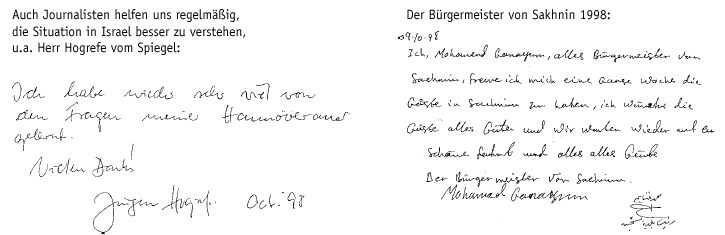 Auch Journalisten helfen uns regelmäßig,
die Situation in Israel besser zu verstehen,
u.a. Herr Hogrefe vom Spiegel:
Ich habe wieder sehr viel von
den Fragen meiner Hannoveraner
gelernt.
Vielen Dank!
Jürgen Hogrefe Oct. 98
Der Bürgermeister von Sakhnin 1998:
09-10-98
Ich, Mohamed, alles Bürgermeister von
Sachnin, freue ich mich eine Ganze Woche die
Gäste in Sachnin zu haben, ich wünsche die
Gäste alles Gute und wir warten wieder auf ein
schöne und alles alles Gäute
Der Bürgermeister von Sachnin.
Mohamed